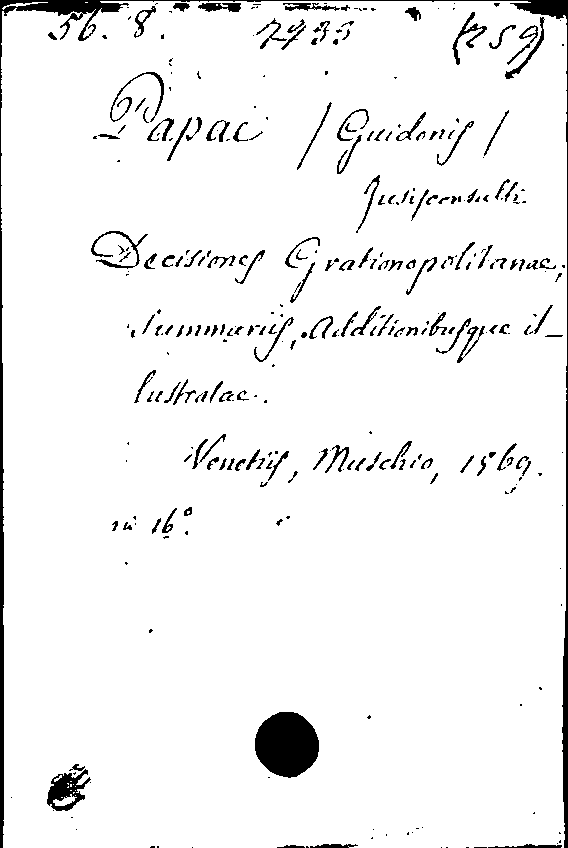 56. 8. 2933 (259)
Papae / Guidonis /
Jurisconsulti
Decisiones Grationopolitanae,
Summariis, Additionibusque il-
lustratae.
Venetiis, Muschio, 1569.
in 16°.